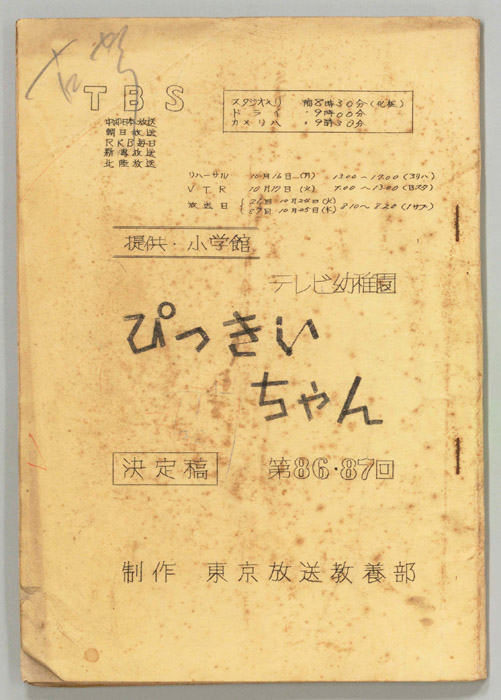 TBS
中部日本放送
朝日放送
RKB毎日
新潟放送
北陸放送
スタジオ入リ 前8時30分(化粧)
ドライ 〃9時00分
カメリハ 〃9時30分
リハーサル 10月16日(月) 13.00〜17.00
VTR 10月17日(火) 7.00〜13.00
放送日 10月24日(火)
10月25日(水) 8.10〜8.20
提供・小学館
テレビ幼稚園
ぴっきい
ちゃん
決定稿
第86・87回
制作 東京放送教養部